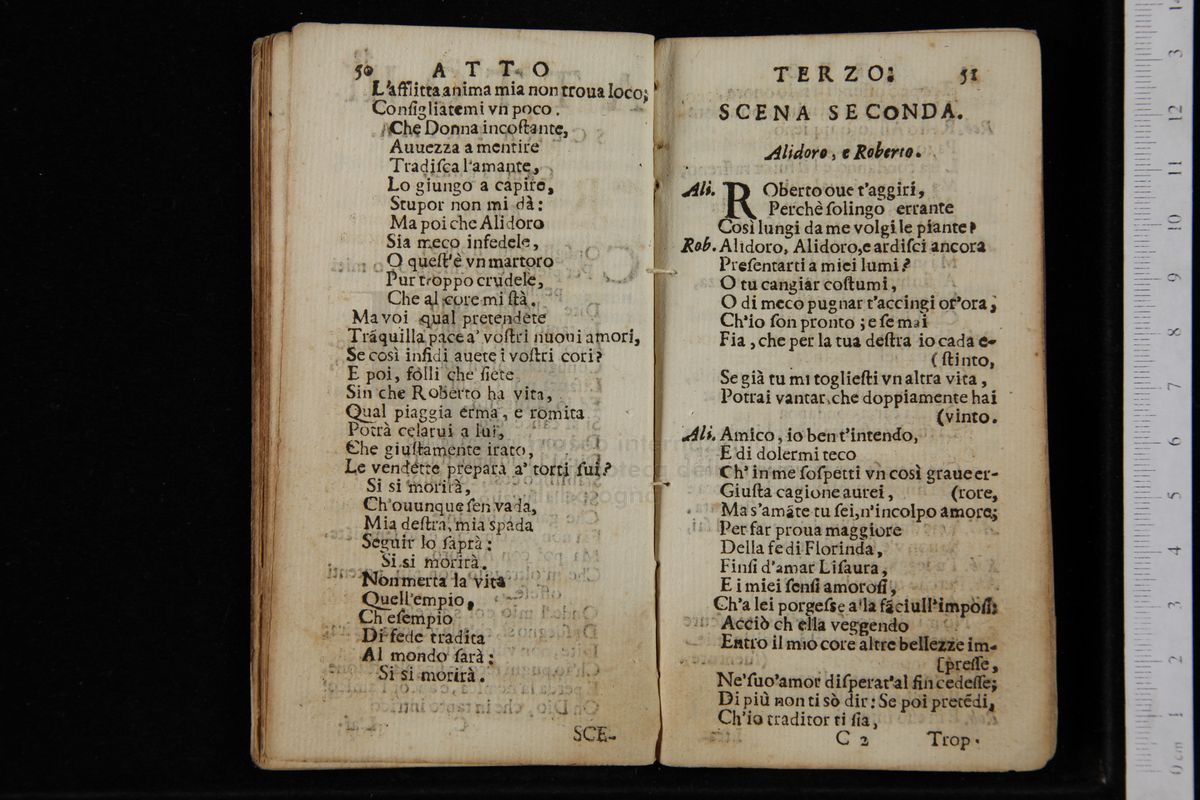 50 ATTO
L'afflitta anima mia non troua loco;
Conſigliatemi vn poco.
Che Donna incoſtante,
Auuezza a mentire
Tradiſca l'amante,
Lo giungo a capire,
Stupor non mi dà:
Ma poi che Alidoro
Sia meco infedele,
O queſt'è vn martoro
Pur troppo crudele,
Che al core mi ſtà.
Ma voi qual pretendete
Trãquilla pace a' voſtri nuoui amori,
Se così infidi auete i voſtri cori?
E poi, folli che ſiete
Sin che Roberto ha vita,
Qual piaggia erma, e romita
Potrà celarui a lui,
Che giuſtamente irato,
Le vendette prepara a' torti ſui?
Si si morirà,
Ch'ouunque ſen vada,
Mia deſtra, mia spada
Seguir lo ſaprà:
Si si morirà.
Non merta la vita
Quell'empio,
Ch'eſempio
Di fede tradita
Al mondo ſarà:
Si si morirà.
SCE-
TERZO: 51
SCENA SECONDA.
Alidoro, e Roberto.
Ali. ROberto oue t'aggiri,
Perchè ſolingo errante
Così lungi da me volgi le piante?
Rob. Alidoro, Alidoro, e ardiſci ancora
Preſentarti a miei lumi?
O tu cangiar coſtumi,
O di meco pugnar t'accingi or'ora;
Ch'io ſon pronto; e ſe mai
Fia, che per la tua deſtra io cada e-
(ſtinto,
Se già tu mi toglieſti vn altra vita,
Potrai vantar, che doppiamente hai
(vinto.
Ali. Amico, io ben t'intendo,
E di dolermi teco
Ch' in me ſoſpetti vn così graue er-
Giuſta cagione aurei, (rore,
Ma s'amãte tu ſei, n'incolpo amore;
Per far proua maggiore
Della fe di Florinda,
Finſi d'amar Liſaura,
E i miei ſenſi amoroſi,
Ch'a lei porgeſſe a la fãciull'impoſi:
Acciò ch ella veggendo
Entro il mio core altre bellezze im-
[preſſe,
Ne'ſuo'amor diſperat'al fin cedeſſe;
Di più non ti sò dir: Se poi pretẽdi,
Ch'io traditor ti ſia,
C 2 Trop-